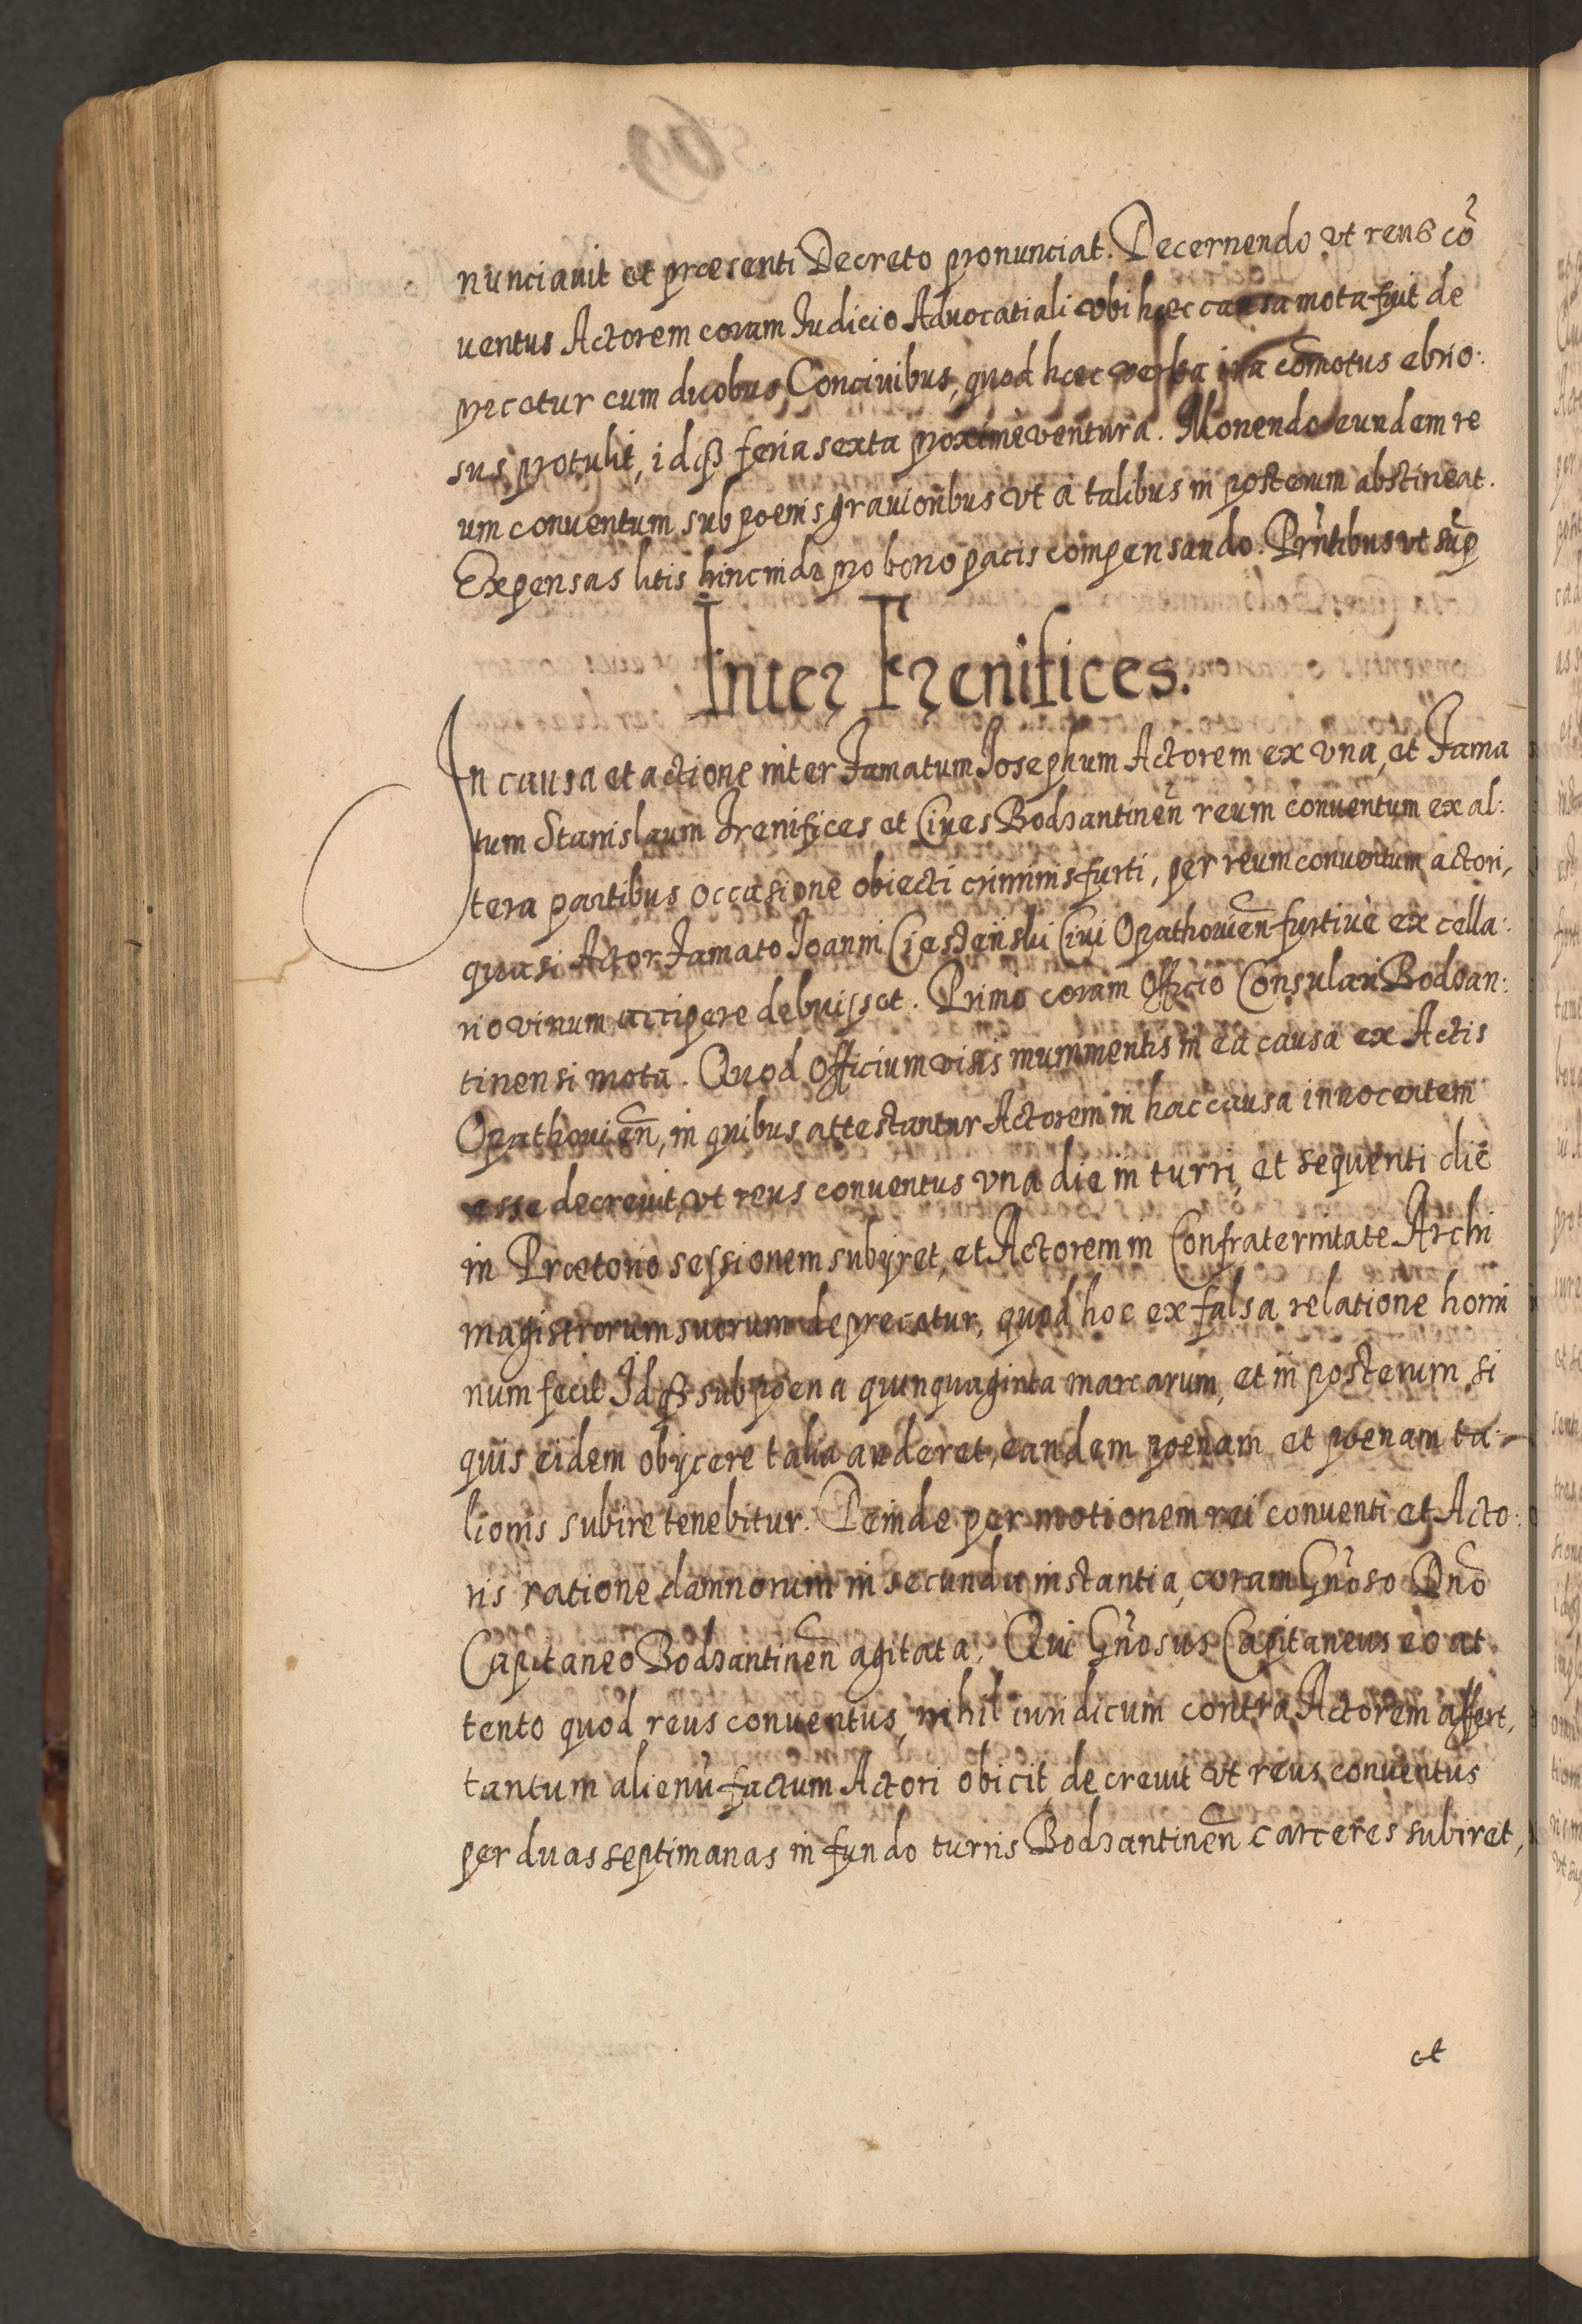 nunciauit et præsenti Decreto pronunciat. Decernendo vt reus cõ
uentus Actorem coram Iudicio Aduocatiali vbi hæc causa mota fuit de
precetur cum duobus Conciuibus, quod hæc verba ira comotus ebrio:
sus protulit, idqß feria sexta proximè ventura. Monendo eundem re
um conuentum sub poenis grauioribus vt à talibus in posterum abstineat.
Expensas litis hinc inde pro bono pacis compensando. Prñtibus vt sup
Inter Frenifices.
In causa et actione inter Famatum Iosephum Actorem ex vna, et Fama
tum Stanislaum Frenifices et Ciues Bodzantineñ reum conuentum ex al:
tera partibus occasione obiecti criminis furti, per reum conuentum actori,
quasi Actor Famato Ioanni Ciesteński Ciui Opathouieñ furtiuè ex cella:
rio vinum accipere debuisset. Primo coram Officio Consulari Bodzan:
tinensi mota. Quod Officium visis munimentis in ea causa ex Actis
Opathouieñ, in quibus attestantur Actorem in hac causa innocentem
esse decreuit, vt reus conuentus vna die in turri, et sequenti die
in Prætorio sessionem subijret, et Actorem in Confraternitate Archi
magistrorum suorum deprecatur, quod hoc ex falsa relatione homi
num fecit Idqß sub poena quinquaginta marcarum, et in posterum si
quis eidem obijcere talia auderet, eandem poenam et poenam ta-
lionis subire tenebitur. Deinde per motionem rei conuenti et Acto:
ris ratione damnorum in secunda instantia, coram Gñoso Dño
Capitaneo Bodzantineñ agitata, Qui Gñosus Capitaneus eo at
tento quod reus conuentus, nihil iuridicum contra Actorem affert,
tantum alienũ factum Actori obicit, decreuit vt reus conuentus
per duas septimanas in fundo turris Bodzantineñ carceres subiret,
et